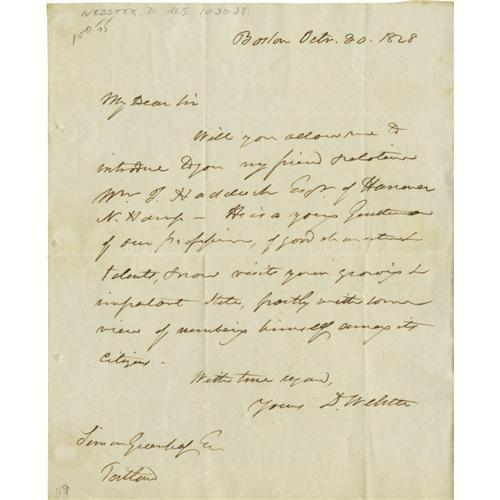 WEBSTER, D. ALS. 10.30.28.
Boston Octr. 30. 1828
My Dear Sir
Will you allow me to
introduce to you my friend & relation
Wm. T. Haddock Esqr. of Hanover
N. Hamp — He is a young Gentleman
of our profession, of good character &
talents, & now visits your growing &
important State, partly with some
view of numbering himself among its
Citizens —
With true regard,
Yours D. Webster
Simon Greenleaf Esq
Portland
119